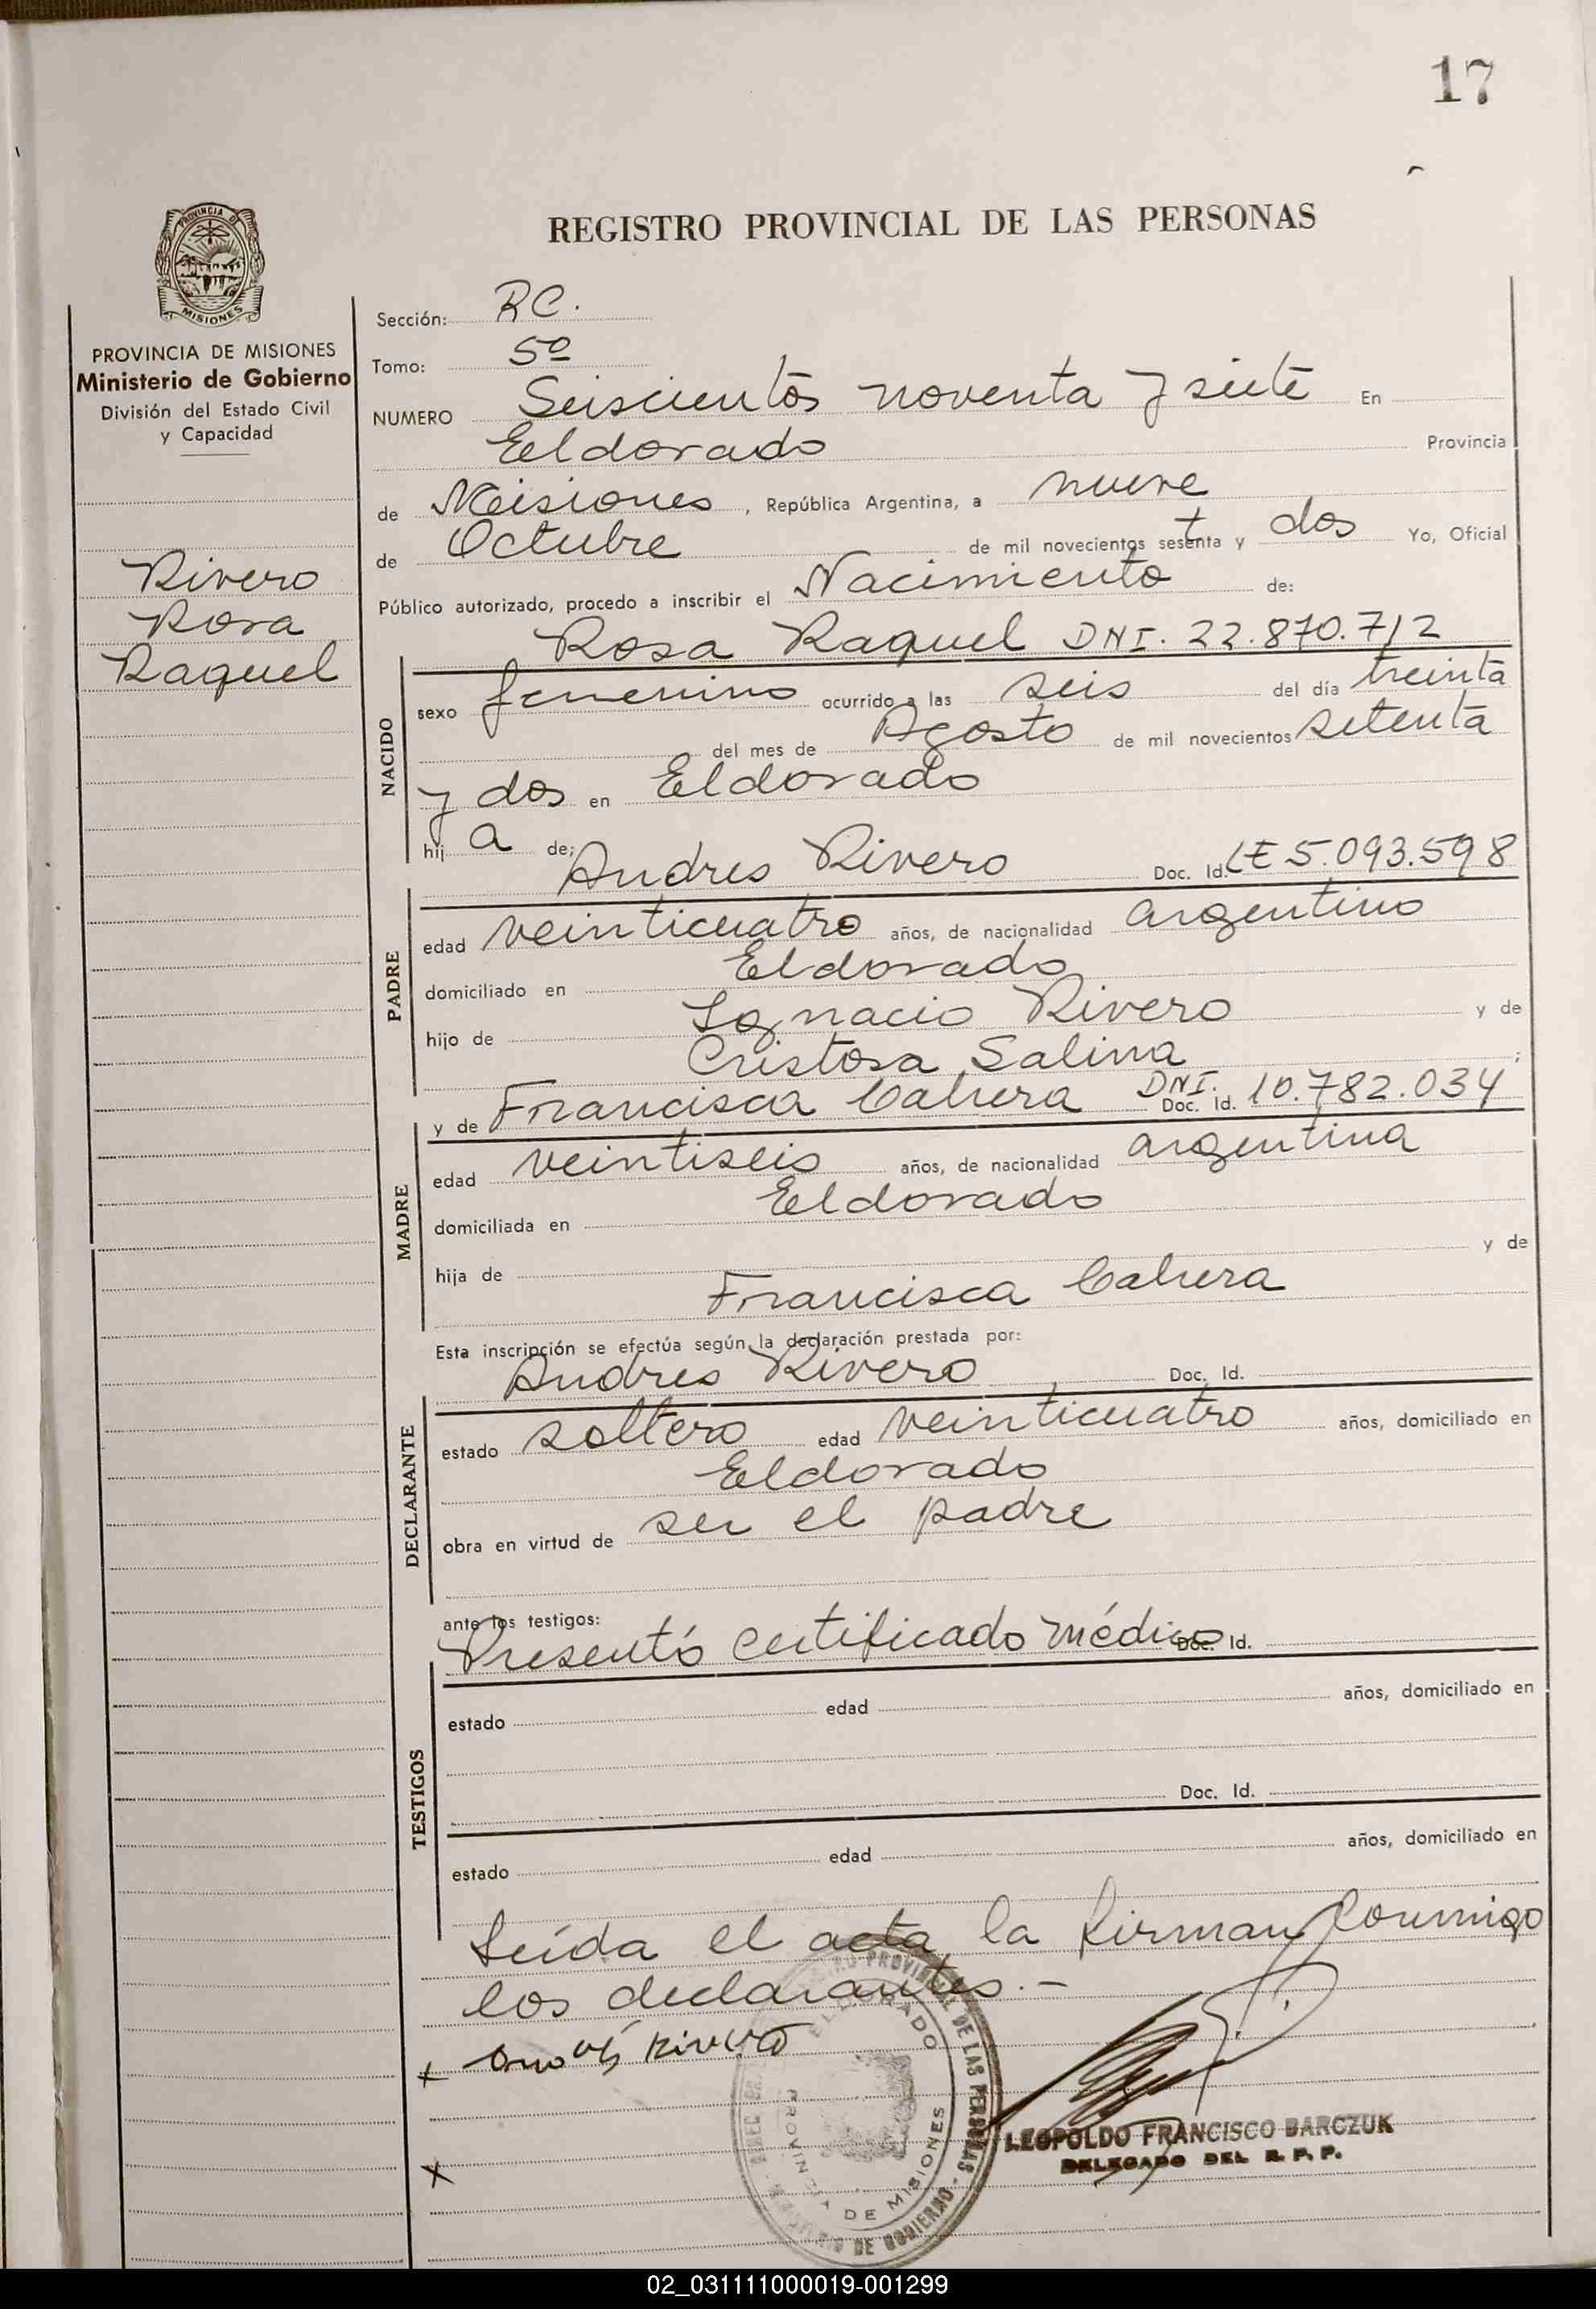 17
REGISTRO PROVINCIAL DE LAS PERSONAS
PROVINCIA DE
MISIONES
PROVINCIA DE MISIONES
Ministerio de Gobierno
División del Estado Civil
y Capacidad
Rivero
Rosa
Raquel
Sección: RC.
Tomo: 5º
NUMERO Seiscientos noventa y siete En
Eldorado Provincia
de Misiones, República Argentina, a nueve
de Octubre de mil novecientos setenta y dos Yo, Oficial
Público autorizado, procedo a inscribir el Nacimiento de:
Rosa Raquel DNI. 22.870.712
NACIDO
sexo femenino ocurrido a las seis del día treinta
del mes de Agosto de mil novecientos setenta
y dos en Eldorado
hij a de; Andres Rivero Doc. Id. LE 5.093.598
PADRE
edad veinticuatro años, de nacionalidad argentino
domiciliado en Eldorado
hijo de Ignacio Rivero y de
Cristosa Salina ;
y de Francisca Cabrera DNI. Doc. Id. 10.782.034
MADRE
edad veintiseis años, de nacionalidad argentina
domiciliada en Eldorado
hija de y de
Francisca Cabrera
Esta inscripción se efectúa según la declaración prestada por:
Andres Rivero , Doc. Id.
DECLARANTE
estado soltero edad veinticuatro años, domiciliado en
Eldorado
obra en virtud de ser el padre
ante los testigos:
Presentó certificado médico Doc. Id.
TESTIGOS
estado edad años, domiciliado en
Doc. Id.
estado edad años, domiciliado en
Leída el acta, la firman conmigo
los declarantes.-
x Rivero
x
PROVINCIAL DE LAS PERSONAS
ELDORADO
PROVINCIA DE MISIONES
DE GOBIERNO
LEOPOLDO FRANCISCO BARCZUK
DELEGADO DEL R. P. P.
02_031111000019-001299